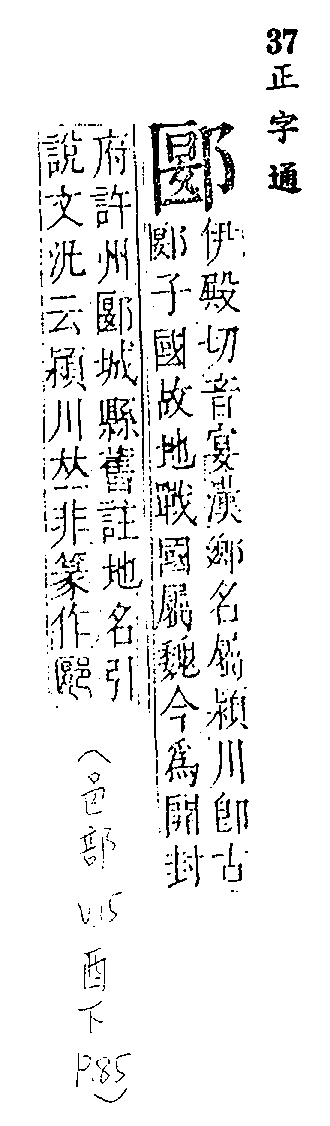 37 正字通
郾
伊殿切音宴漢鄉名屬潁川卽古
郾子國故地戰國屬魏今為開封
府許州郾城縣舊註地名引
說文汎云潁川𠀤非篆作郾
(邑部 V.15 酉下 P.85)